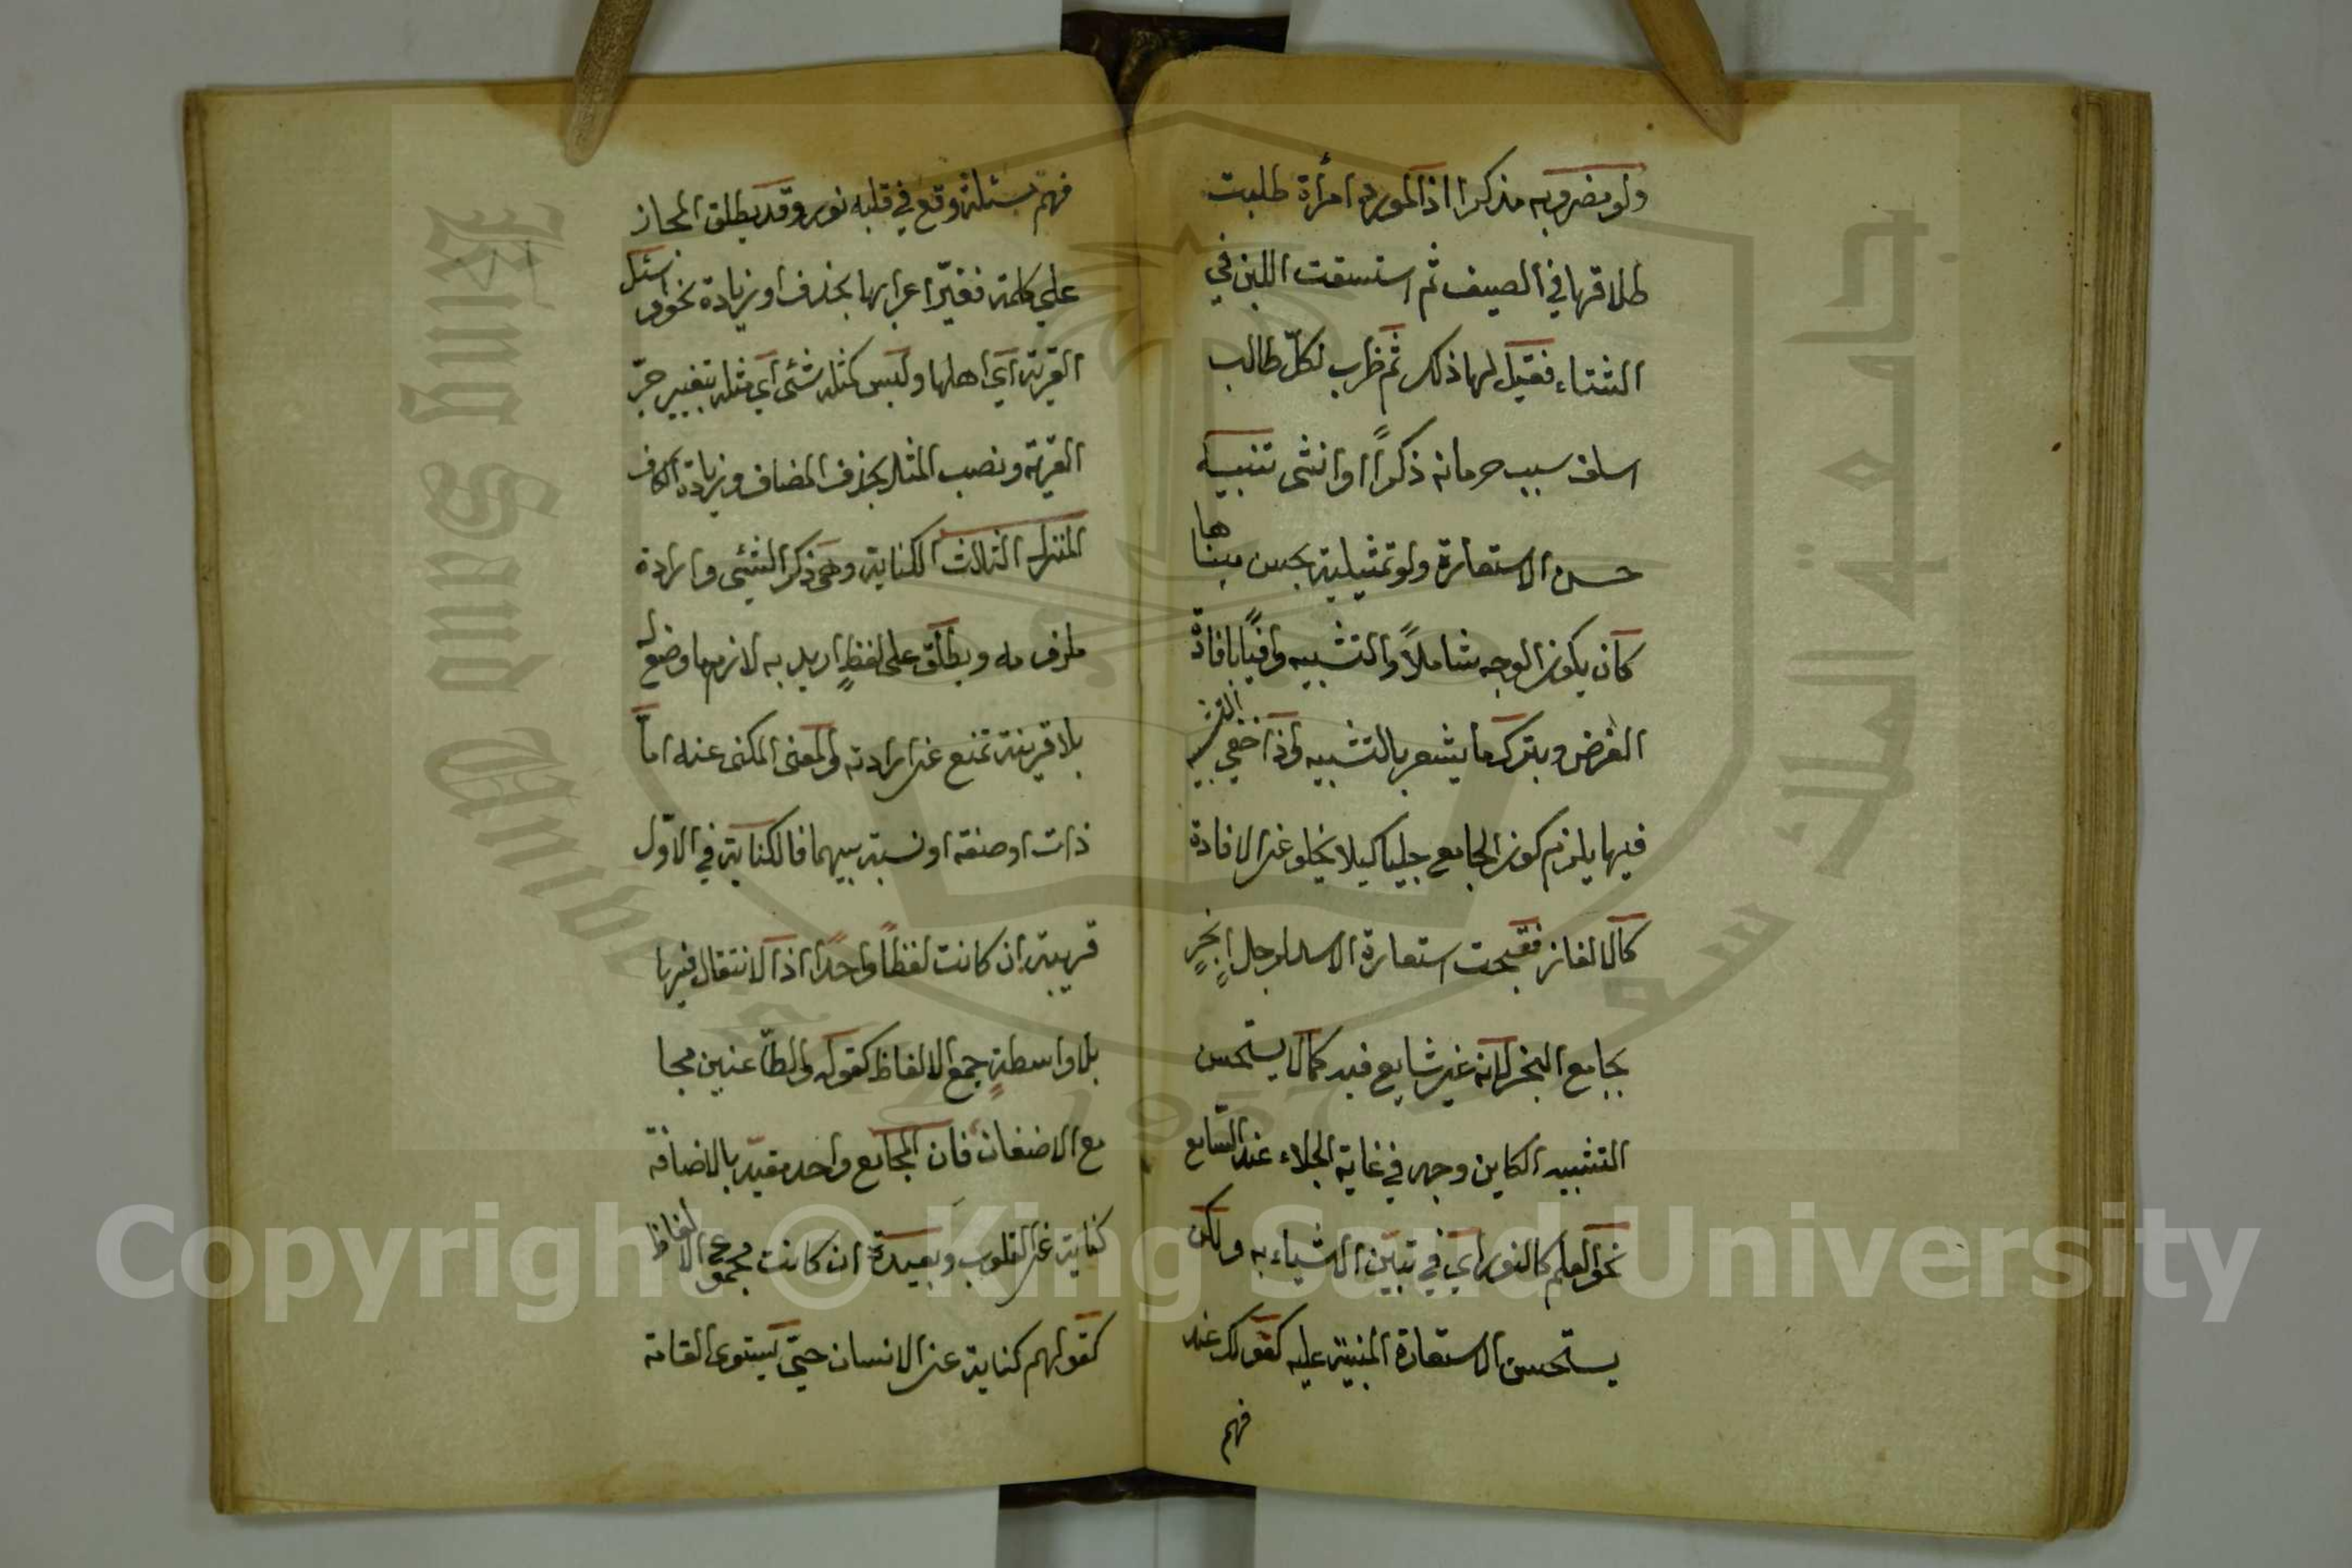 ولو مضروبه مذكرا اذ المورد امرأة طلبت
طلاقها في الصيف ثم استسقت اللبن في
الشتاء فقيل لها ذلك ثم ظرب لكلّ طالب
اسلف سبب حرمانه ذكراً او انثى تنبيه
حسن الاستعارة ولو تمثيلية بحسن مبناها
كان يكون الوجه شاملاً والتشبيه وافياً بافادة
الغرض وبترك ما يشعر بالتشبيه ولذا خفي التشبيه
فيها يلزم كون الجامع جليا كيلا يخلو عن الافادة
كالالغاز فقبحت استعارة الاسد لرجل ابخر
بجامع البخر لانه غير شايع فيه كما لا يستحسن
التشبيه الكاين وجهه في غاية الجلاء عند السامع
نحو العلم كالنور اي في تبيّن الاشياء به ولكن
يستحسن الاستعارة المبنية عليه كقولك عند
فهم
فهم مسئلة وقع في قلبه نور وقد يطلق المجاز
على كلمة فغيّر اعرابها بحذف او زيادة نحو واسئل
القرية اي اهلها وليس كمثله شئ اي مثله بتغيير جرّ
القرية ونصب المثل بحذف المضاف وزيادة الكاف
المنزل الثالث الكناية وهى ذكر الشئ وارادة
ملزومه ويطلق على لفظٍ اريد به لازم ما وضع له
بلا قرينة تمنع عن ارادته والمعنى المكنى عنه اما
ذات او صفة او نسبة بينهما فالكناية في الاوّل
قريبة ان كانت لفظاً واحداً اذ الانتقال فيها
بلا واسطةٍ جمع الالفاظ كقوله والطّاعنين مجا
مع الاضغان فان المجامع واحد مقيد بالاضافة
كناية عن القلوب وبعيدة ان كانت مجموع الالفاظ
كقولهم كناية عن الانسان حيّ يستوى القامة